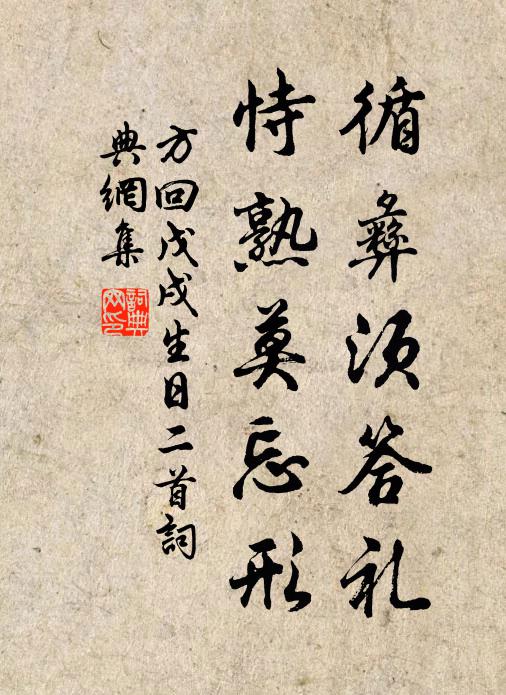 循彝须答礼
恃熟莫忘形
方回戊戌生日二首詞
典網集
詞典
网印